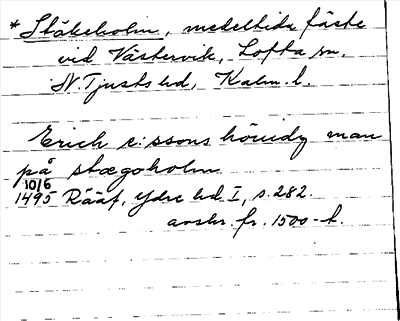 * Stäkeholm, medeltida fäste
vid Västervik, Lofta sn.
N. Tjusts hd, Kalm. l.
Erich e:ssons höuidz man
på stægoholm
10/6
1495 Rääf, Ydre hd I, s. 282.
avskr. fr. 1500-t.